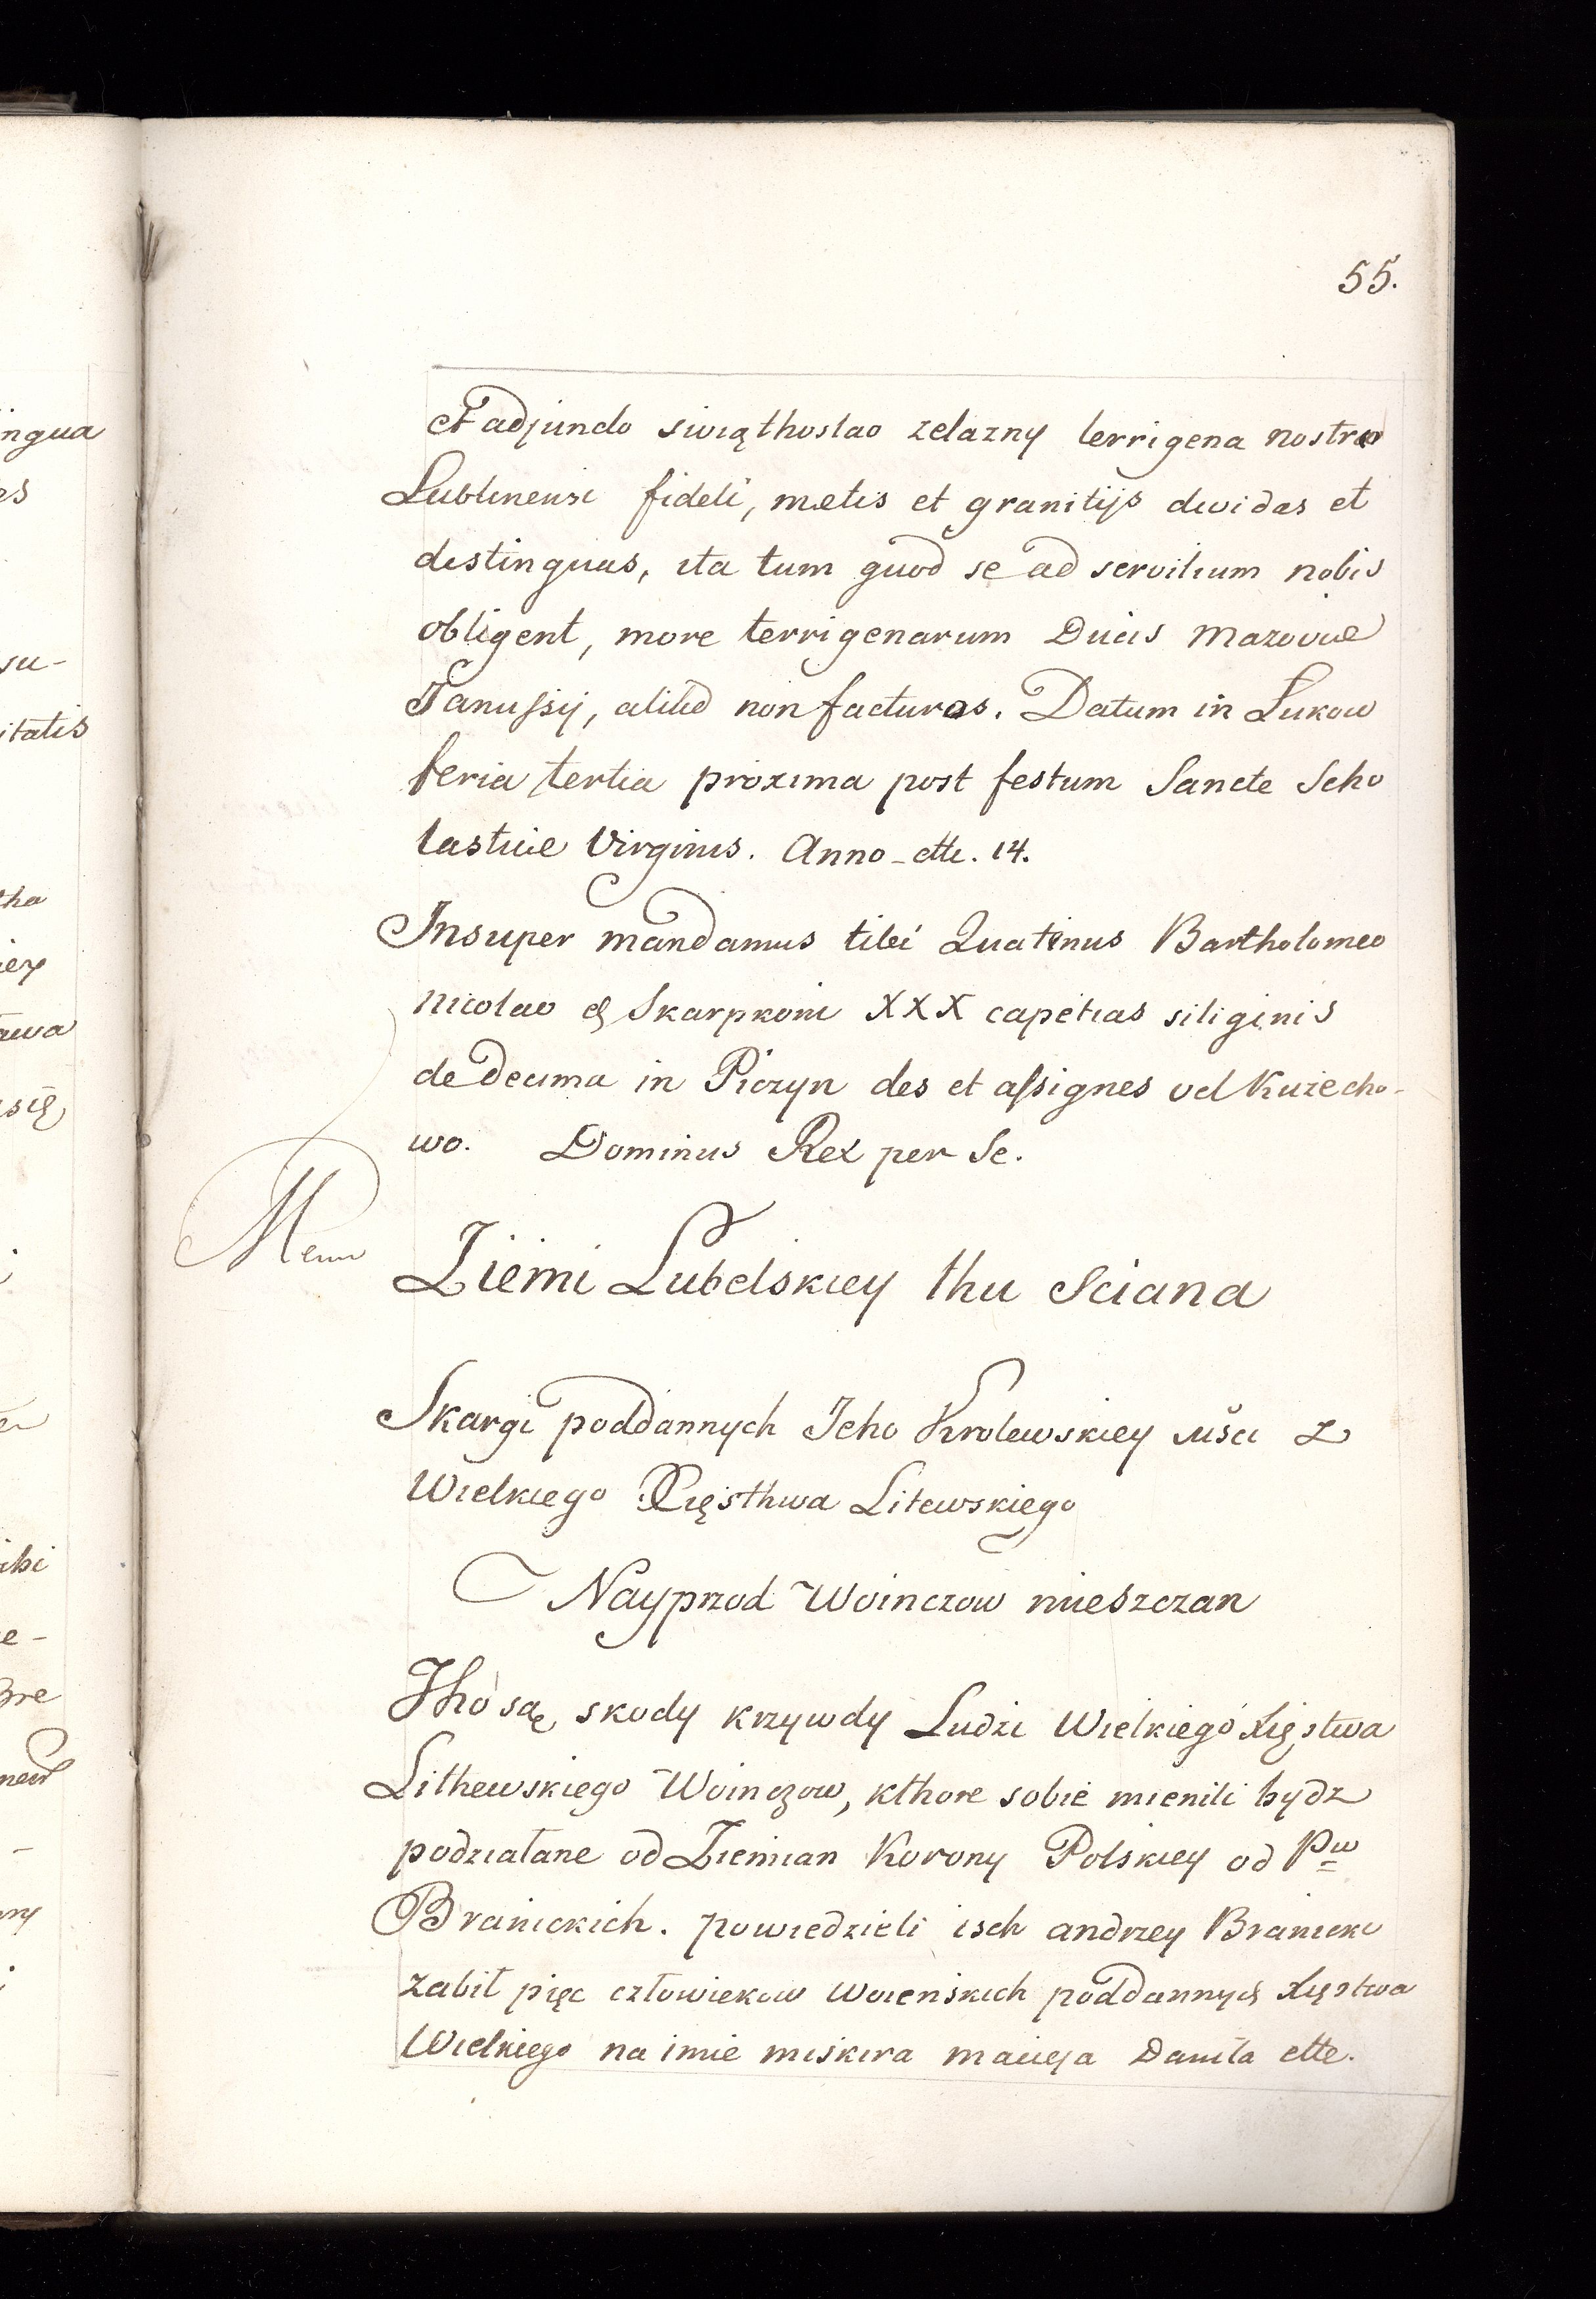 55.
et adjuncto swiąthoslao zelazny terrigena nostro
Lublinensi fideli, metis et granitijs dividas et
distinguas, ita tum quod se ad servitium nobis
obligent, more terrigenarum Ducis Mazovie
Janussij, aliud non facturas. Datum in Lukow
feria tertia proxima post festum Sancte Scho
lastice Virginis. Anno etc. 14.
Insuper mandamus tibi Quatinus Bartholomeo
Nicolao & Skarpkoni XXX capetias siliginis
de decima in Piczyn des et assignes vel Kuzecho-
wo. Dominus Rex per Se.
Ziemi Lubelskiey thu Sciana
Skargi poddannych Jeho Krolewskiey Mści z
Wielkiego Xięsthwa Litewskiego
Nayprzod Woinczow mieszczan
Tho są skody krzywdy Ludzi Wielkiego Xięstwa
Lithewskiego Woinczow, kthore sobie mienili bydz
podziałane od Ziemian Korony Polskiey od Pw
Branickich. powiedzieli isch andrzey Branicki
zabił pięc człowiekow woienskich poddannych Xięstwa
Wielkiego na imie miskira macieja Daniła ette.
ingua
es
su-
itatis
tha
iey
awa
się
e-